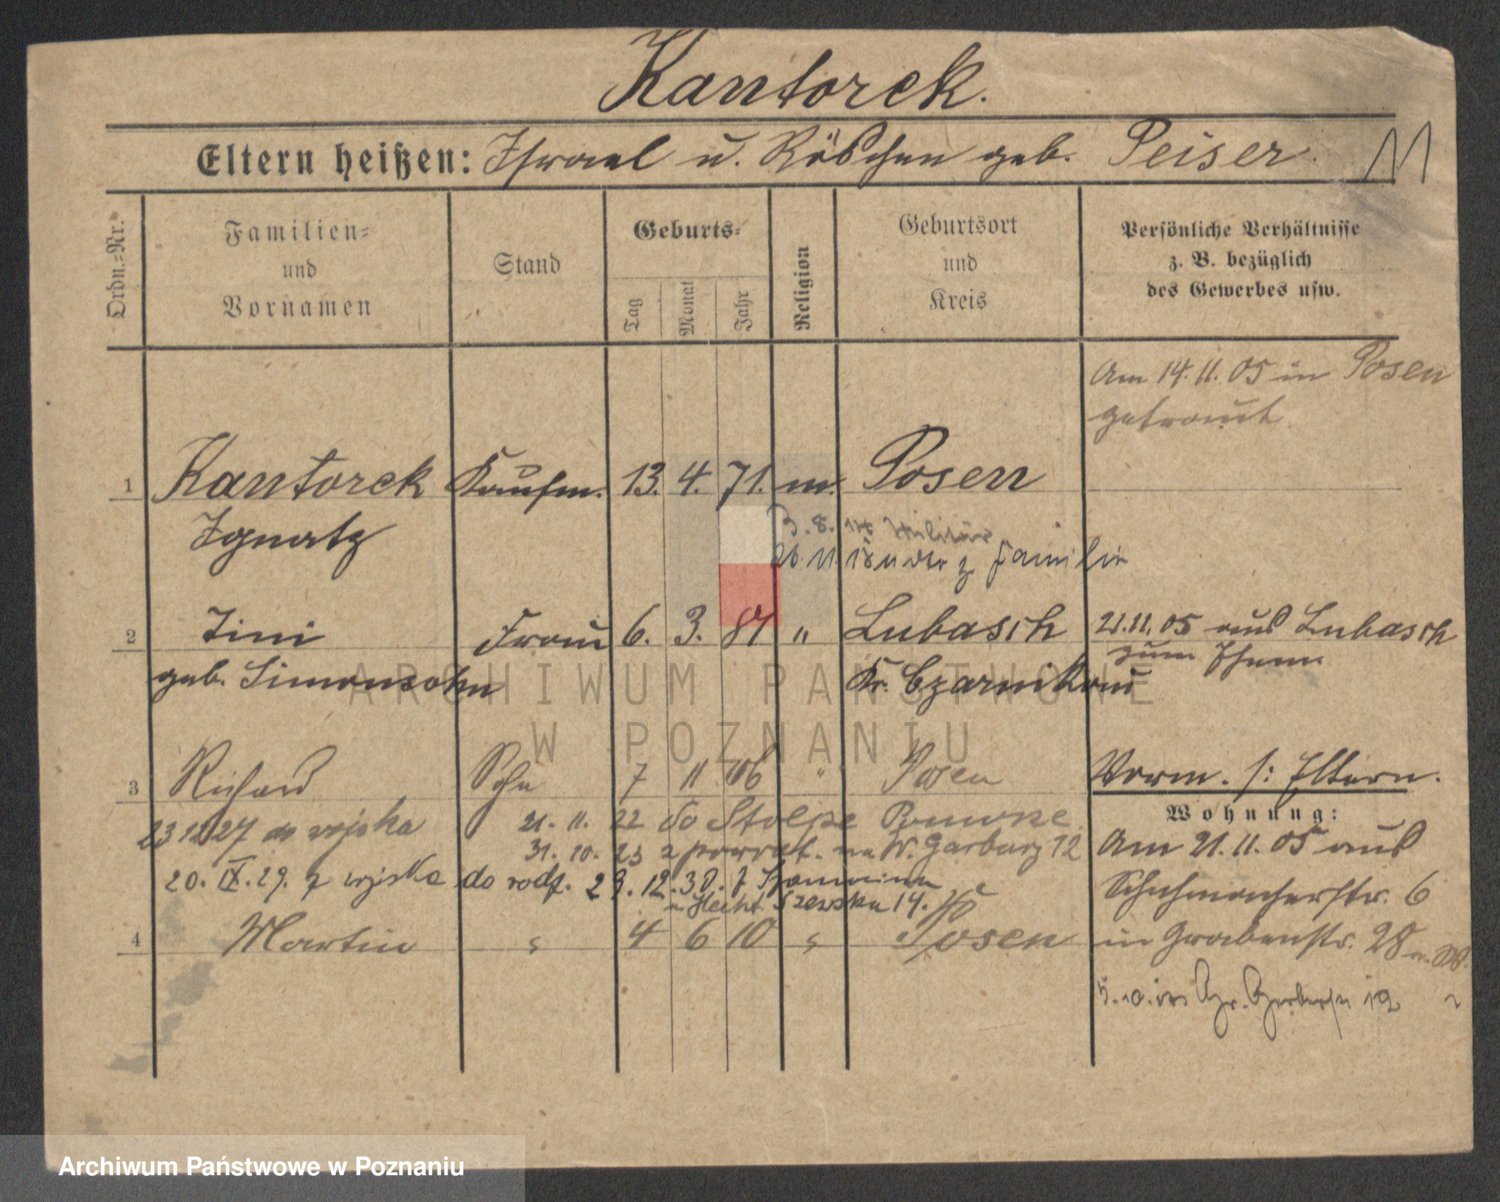 Kantorek.
Eltern heißen: Israel u. Röschen geb. Peiser.
Ordn.-Nr.
Familien- und Vornamen
Stand
Geburts-
Tag Monat Jahr
Religion
Geburtsort und Kreis
Persönliche Verhältnisse
z. B. bezüglich
des Gewerbes usw.
Am 14.11.05 in Posen
getraut
1 Kantorek Kaufm. 13. 4. 71. m. Posen
Ignatz
Militär
Familie
2 Frau 6. 3. 84 " Lubasch 21.11.05 aus Lubasch
geb. Simonsohn Kr. Czarnikau
zum Ehem
3 Richard Sohn 7 11 06 " Posen
Vorm. s: Eltern.
Wohnung:
23 12 27 do wojska 21. 11. 22 do Stolpe
31. 10. 23 z powrot. na W. Garbary 12
Am 21.11.05 aus
20. IX. 29. z wojska do rodz. 29. 12. 30. z
Schuhmacherstr. 6
14.
4 Martin " 4 6 10 " Posen
in Grabenstr. 28
Gr. Gerberstr 12
ARCHIWUM PAŃSTWOWE
W POZNANIU
Archiwum Państwowe w Poznaniu